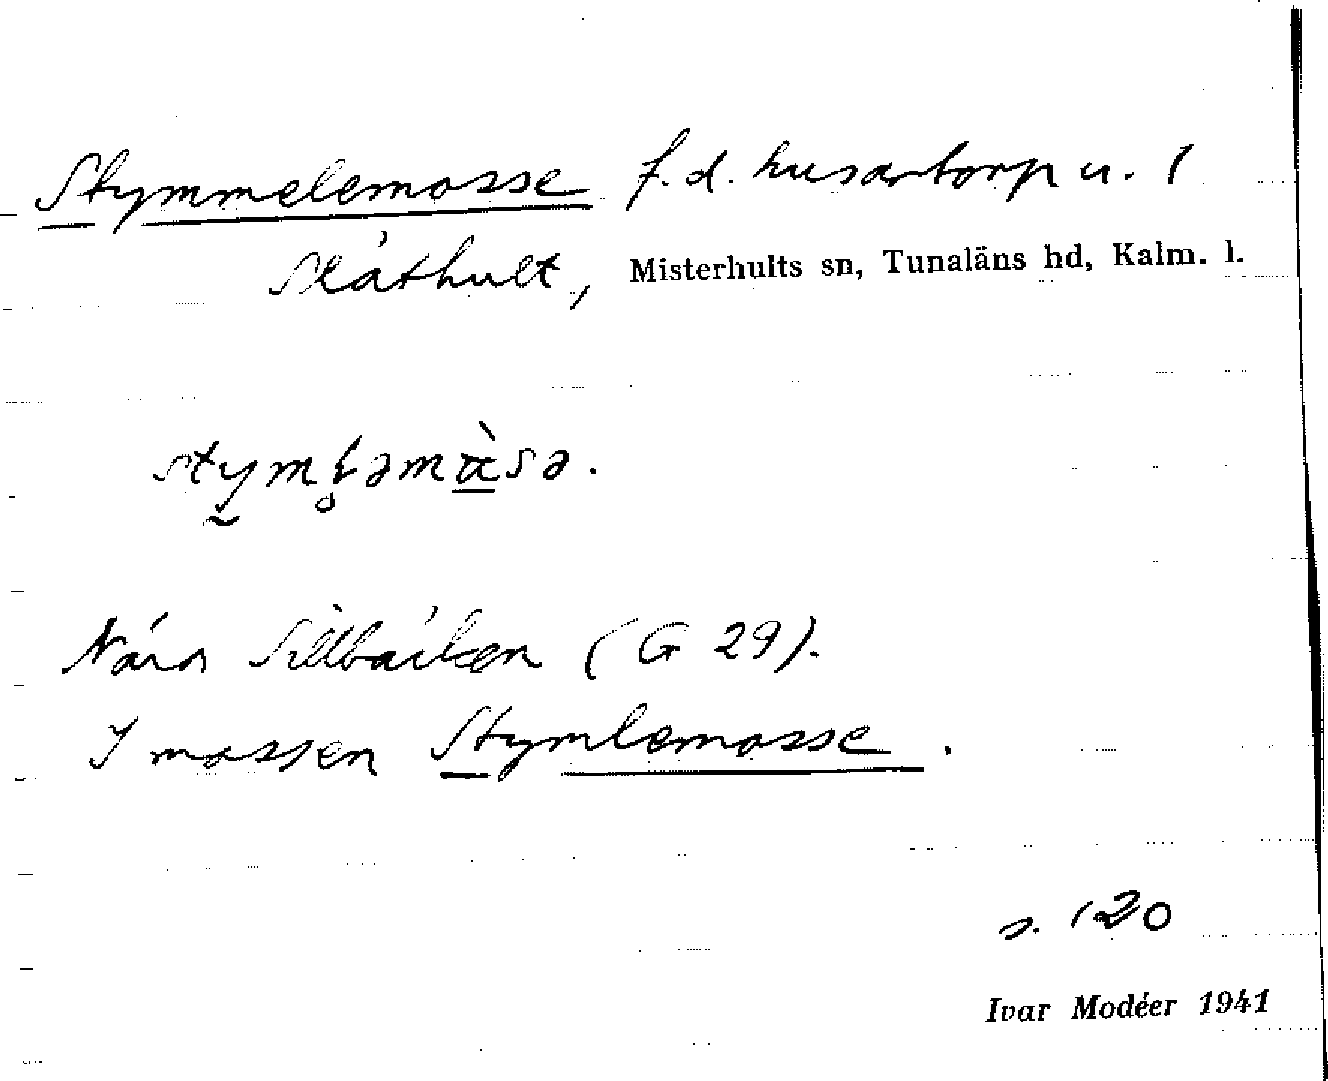 Stymmelemosse f.d. husartorp u. 1
Släthult, Misterhults sn, Tunaläns hd, Kalm. l.
Nära Sillbäcken (G 29).
I mossen Stymlemosse.
s. 120
Ivar Modéer 1941